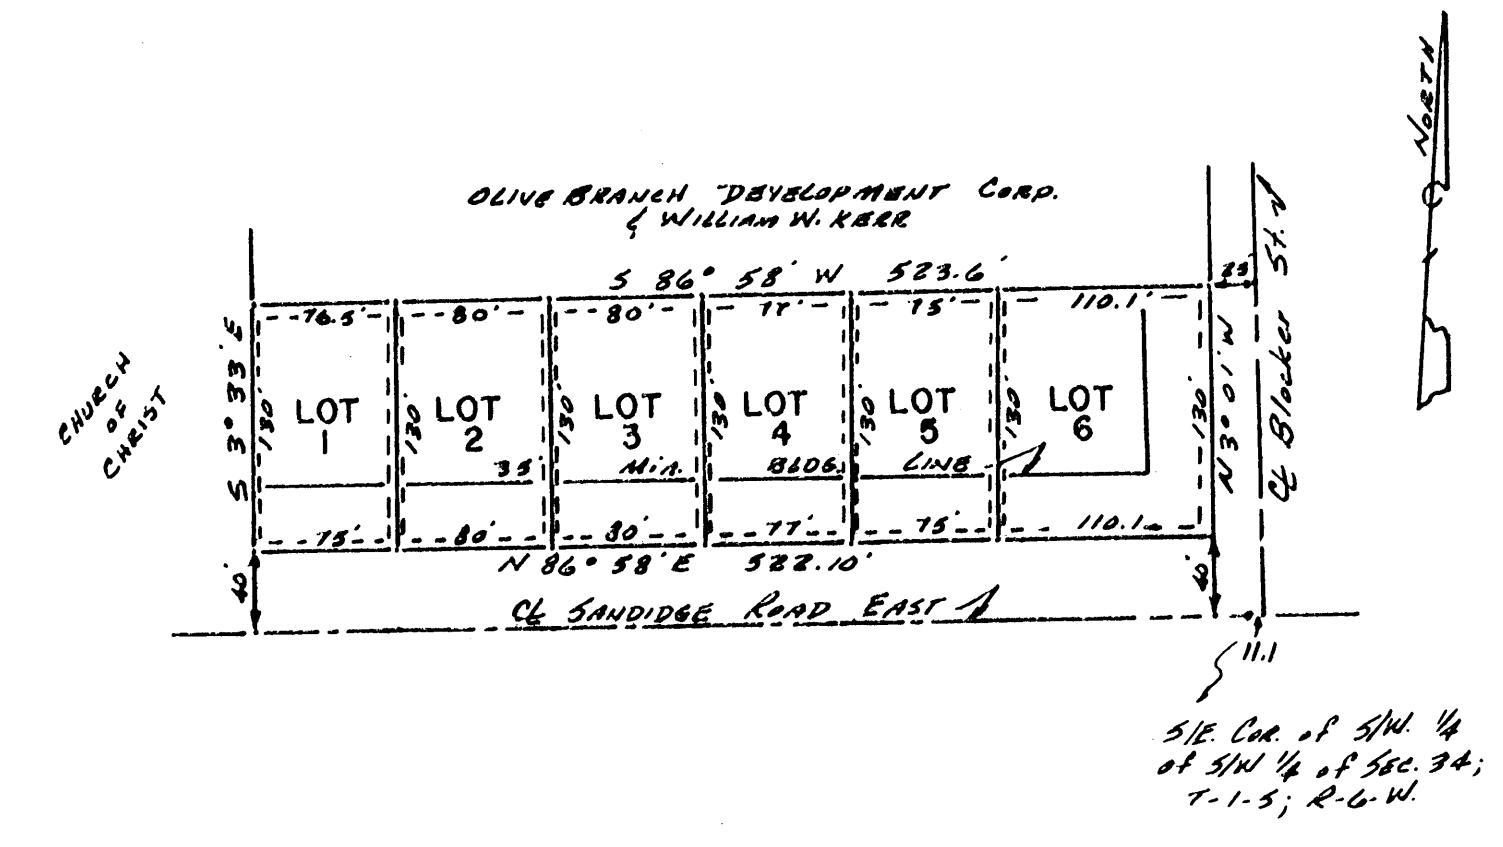 NORTH
OLIVE BRANCH DEVELOPMENT CORP.
& WILLIAM W. KERR
S 86° 58' W 523.6'
25'
76.5' 80' 80' 77' 75' 110.1'
CHURCH
OF
CHRIST
S 3° 33' E
130' 130' 130' 130' 130' 130' 130'
LOT
1
LOT
2
LOT
3
LOT
4
LOT
5
LOT
6
N 3° 01' W
℄ Blocker St. N
35' Min. BLDG. LINE
75' 80' 80' 77' 75' 110.1
N 86° 58' E 522.10'
40'
40'
℄ SANDIDGE ROAD EAST
11.1
S/E. COR. of S/W. 1/4
of S/W 1/4 of SEC. 34;
T-1-S; R-6-W.